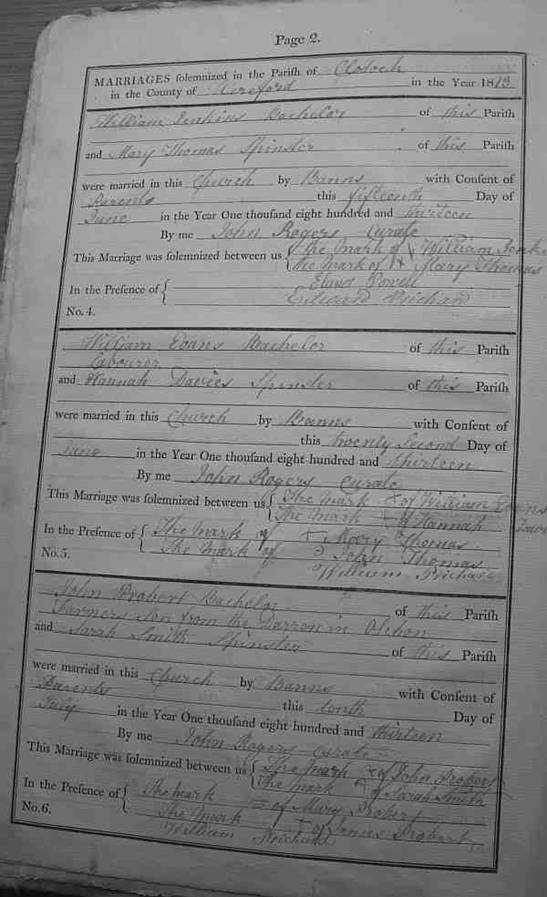 Page 2.
MARRIAGES solemnized in the Parish of Clodock
in the County of Hereford in the Year 1813
William Jenkins Bachelor of this Parish
and Mary Thomas Spinster of this Parish
were married in this Church by Banns with Consent of
Parents this fifteenth Day of
June in the Year One thousand eight hundred and thirteen
By me John Rogers Curate
This Marriage was solemnized between us { the Mark of William Jenk
the Mark of x Mary Thomas
In the Presence of { Powell
Edward Prichard
No. 4.
William Evans Bachelor of this Parish
labourer
and Hannah Davies Spinster of this Parish
were married in this Church by Banns with Consent of
this twenty Second Day of
June in the Year One thousand eight hundred and thirteen
By me John Rogers Curate
This Marriage was solemnized between us { The mark x of William Evans
The Mark x of Hannah Davi
In the Presence of { The Mark of x Mary Thomas
The Mark of John Thomas
William Prichard
No. 5.
John Probert Bachelor of this Parish
Farmers Son from the Darren in Olchon
and Sarah Smith Spinster of this Parish
were married in this Church by Banns with Consent of
Parents this tenth Day of
July in the Year One thousand eight hundred and thirteen
By me John Rogers Curate
This Marriage was solemnized between us { The Mark x of John Probert
The Mark x of Sarah Smith
In the Presence of { The Mark of Mary Probert
The Mark of James Probert
William Prichard
No. 6.